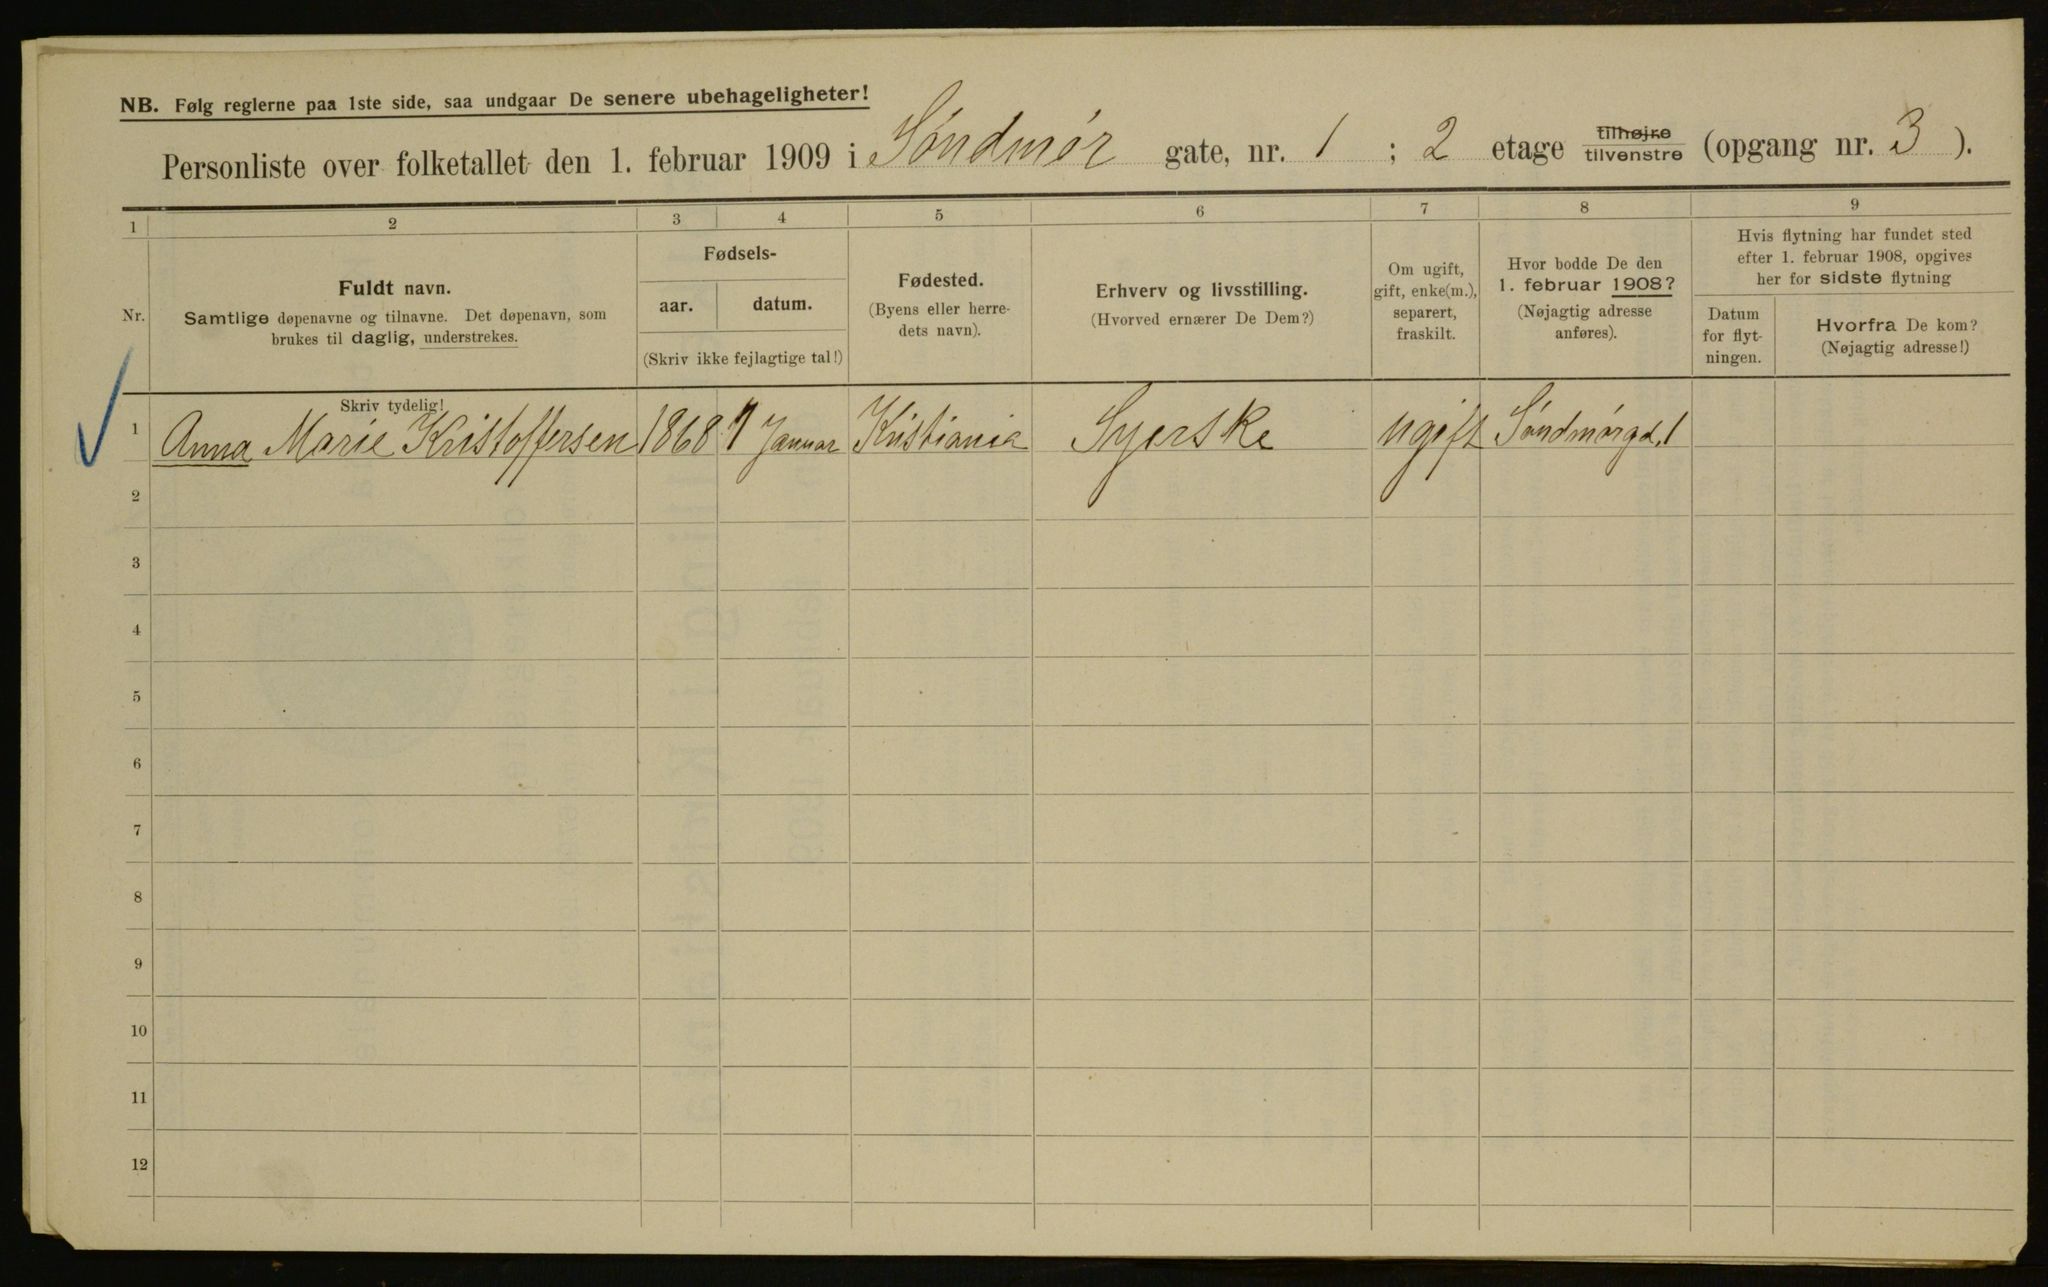 NB. Følg reglerne paa 1ste side, saa undgaar De senere ubehageligheter!
Personliste over folketallet den 1. februar 1909 i Söndmör gate, nr. 1 ; 2 etage tilhøjre tilvenstre (opgang nr. 3 ).
1 2 3 4 5 6 7 8 9
Nr.
Fuldt navn.
Samtlige døpenavne og tilnavne. Det døpenavn, som
brukes til daglig, understrekes.
Fødsels-
aar. datum.
(Skriv ikke fejlagtige tal!)
Fødested.
(Byens eller herre-
dets navn).
Erhverv og livsstilling.
(Hvorved ernærer De Dem?)
Om ugift,
gift, enke(m.),
separert,
fraskilt.
Hvor bodde De den
1. februar 1908?
(Nøjagtig adresse
anføres).
Hvis flytning har fundet sted
efter 1. februar 1908, opgives
her for sidste flytning
Datum
for flyt-
ningen.
Hvorfra De kom?
(Nøjagtig adresse!)
Skriv tydelig!
1 Anna Marie Kristoffersen 1868 7 Januar Kristiania Syerske ugift Söndmörgd. 1
2
3
4
5
6
7
8
9
10
11
12